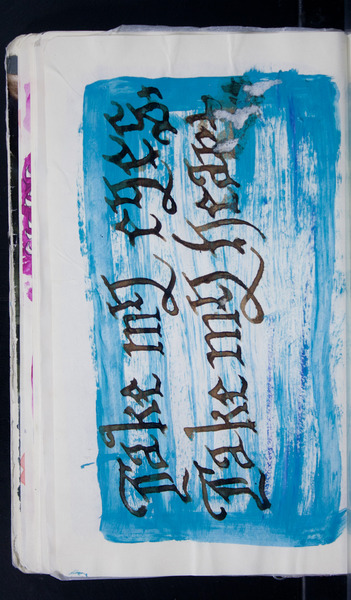 Take my eyes,
Take my heart